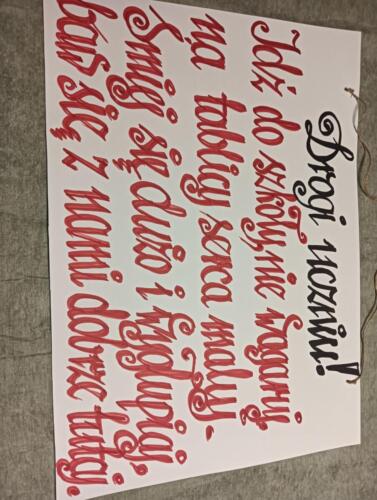 Drogi uczniu!
Idź do szkoły, nie wagaruj,
na tablicy serca maluj.
Śmiej się dużo i wygłupiaj,
baw się z nami dobrze tutaj.